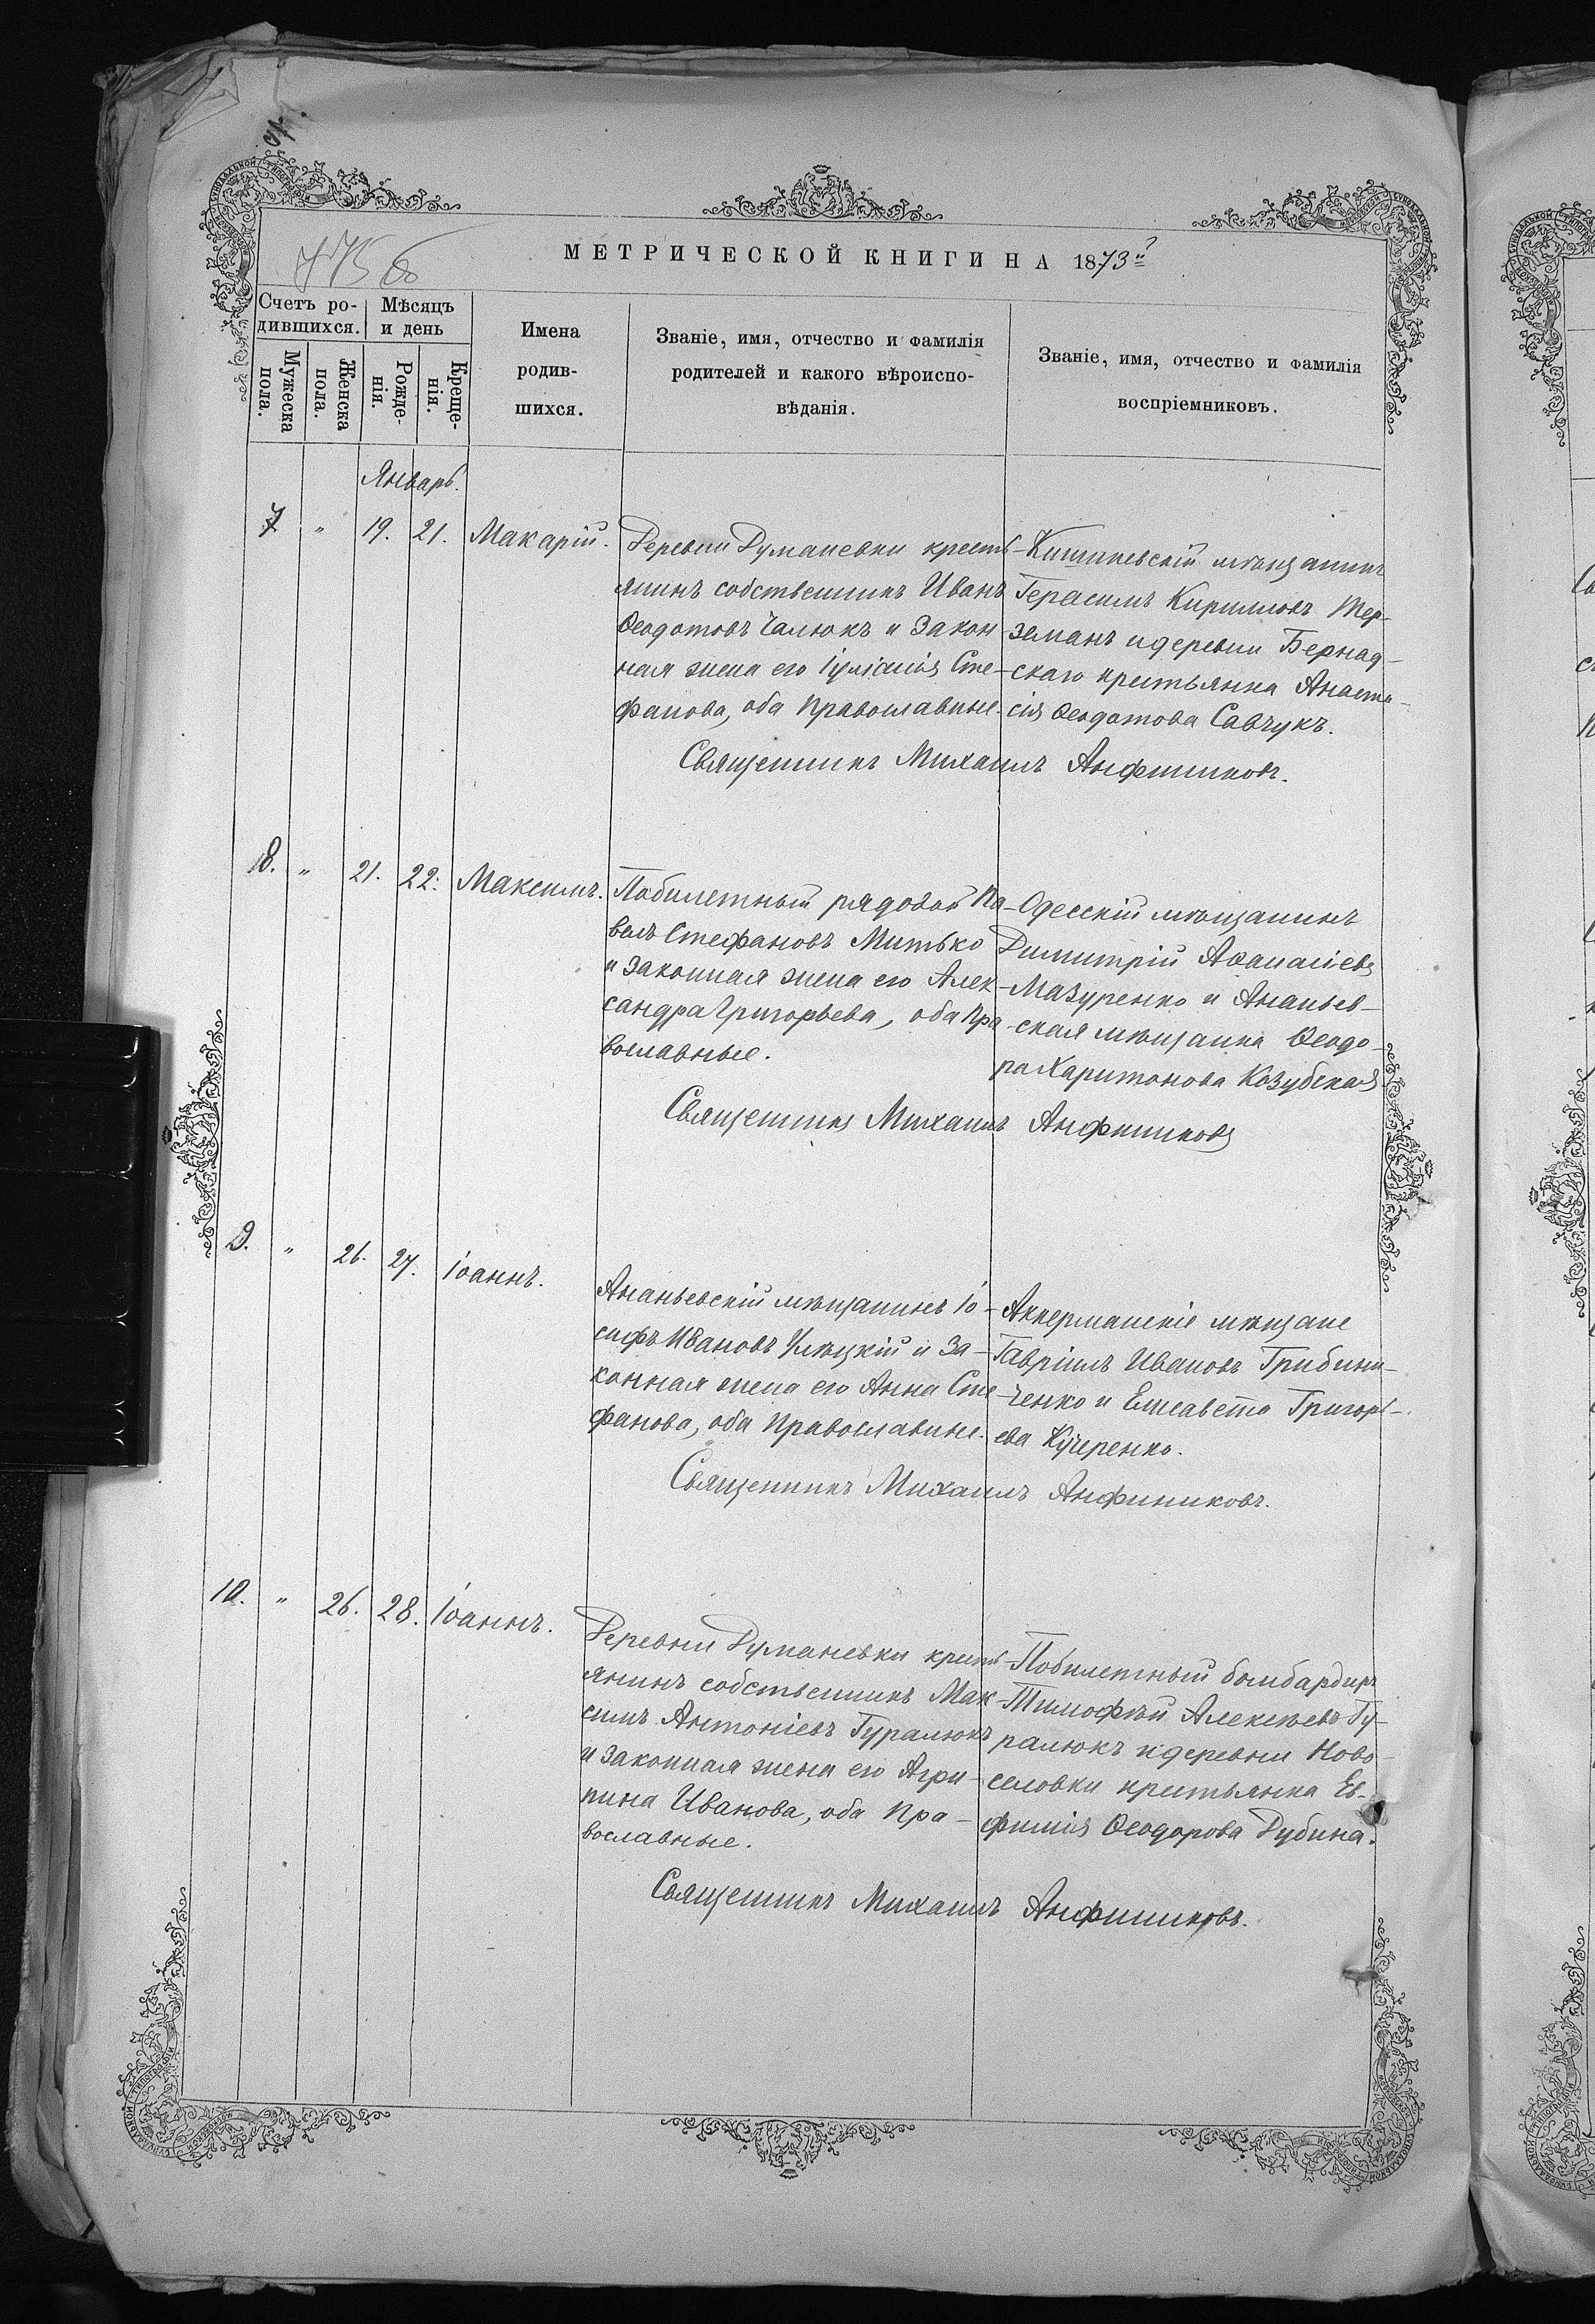 МЕТРИЧЕСКОЙ КНИГИ НА 1873й
Счетъ ро-
дившихся.
Мѣсяцъ
и день
Мужеска
пола.
Женска
пола.
Рожде-
нія.
Креще-
нія.
Имена
родив-
шихся.
Званіе, имя, отчество и фамилія
родителей и какого вѣроиспо-
вѣданія.
Званіе, имя, отчество и фамилія
воспріемниковъ.
Январь.
7 " 19. 21. Макарій.
Деревни Думаневки кресть-
янинъ собственникъ Иванъ
Ѳеодотовъ Чалюкъ и закон-
ная жена его Іуліанія Сте-
фанова, оба православные.
Кишиневскій мѣщанинъ
Герасимъ Кирилловъ Тер-
земанъ и деревни Бернад-
скаго крестьянка Анаста-
сія Ѳеодотова Савчукъ.
Священникъ Михаилъ Анфиниковъ.
8. " 21. 22. Максимъ.
Побилетный рядовой Па-
велъ Стефановъ Митько
и законная жена его Алек-
сандра Григорьева, оба пра-
вославные.
Одесскій мѣщанинъ
Димитрій Аѳанасіевъ
Мазуренко и Ананьев-
ская мѣщанка Ѳеодо-
ра Харитонова Козубская
Священникъ Михаилъ Анфиниковъ
9. " 26. 27. Іоаннъ.
Ананьевскій мѣщанинъ Іо-
сифъ Ивановъ Улѣцкій и за-
конная жена его Анна Сте-
фанова, оба православные.
Аккерманскіе мѣщане
Гавріилъ Ивановъ Грибини-
ченко и Елисавета Григорь-
ева Кучеренко.
Священникъ Михаилъ Анфиниковъ.
10. " 26. 28. Іоаннъ.
Деревни Думаневки кресть-
янинъ собственникъ Мак-
симъ Антоніевъ Гуралюкъ
и законная жена его Агри-
пина Иванова, оба пра-
вославные.
Побилетный бомбардиръ
Тимофѣй Алексѣевъ Гу-
ралюкъ и деревни Ново-
селовки крестьянка Ев-
фимія Ѳеодорова Дубина.
Священникъ Михаилъ Анфиниковъ.